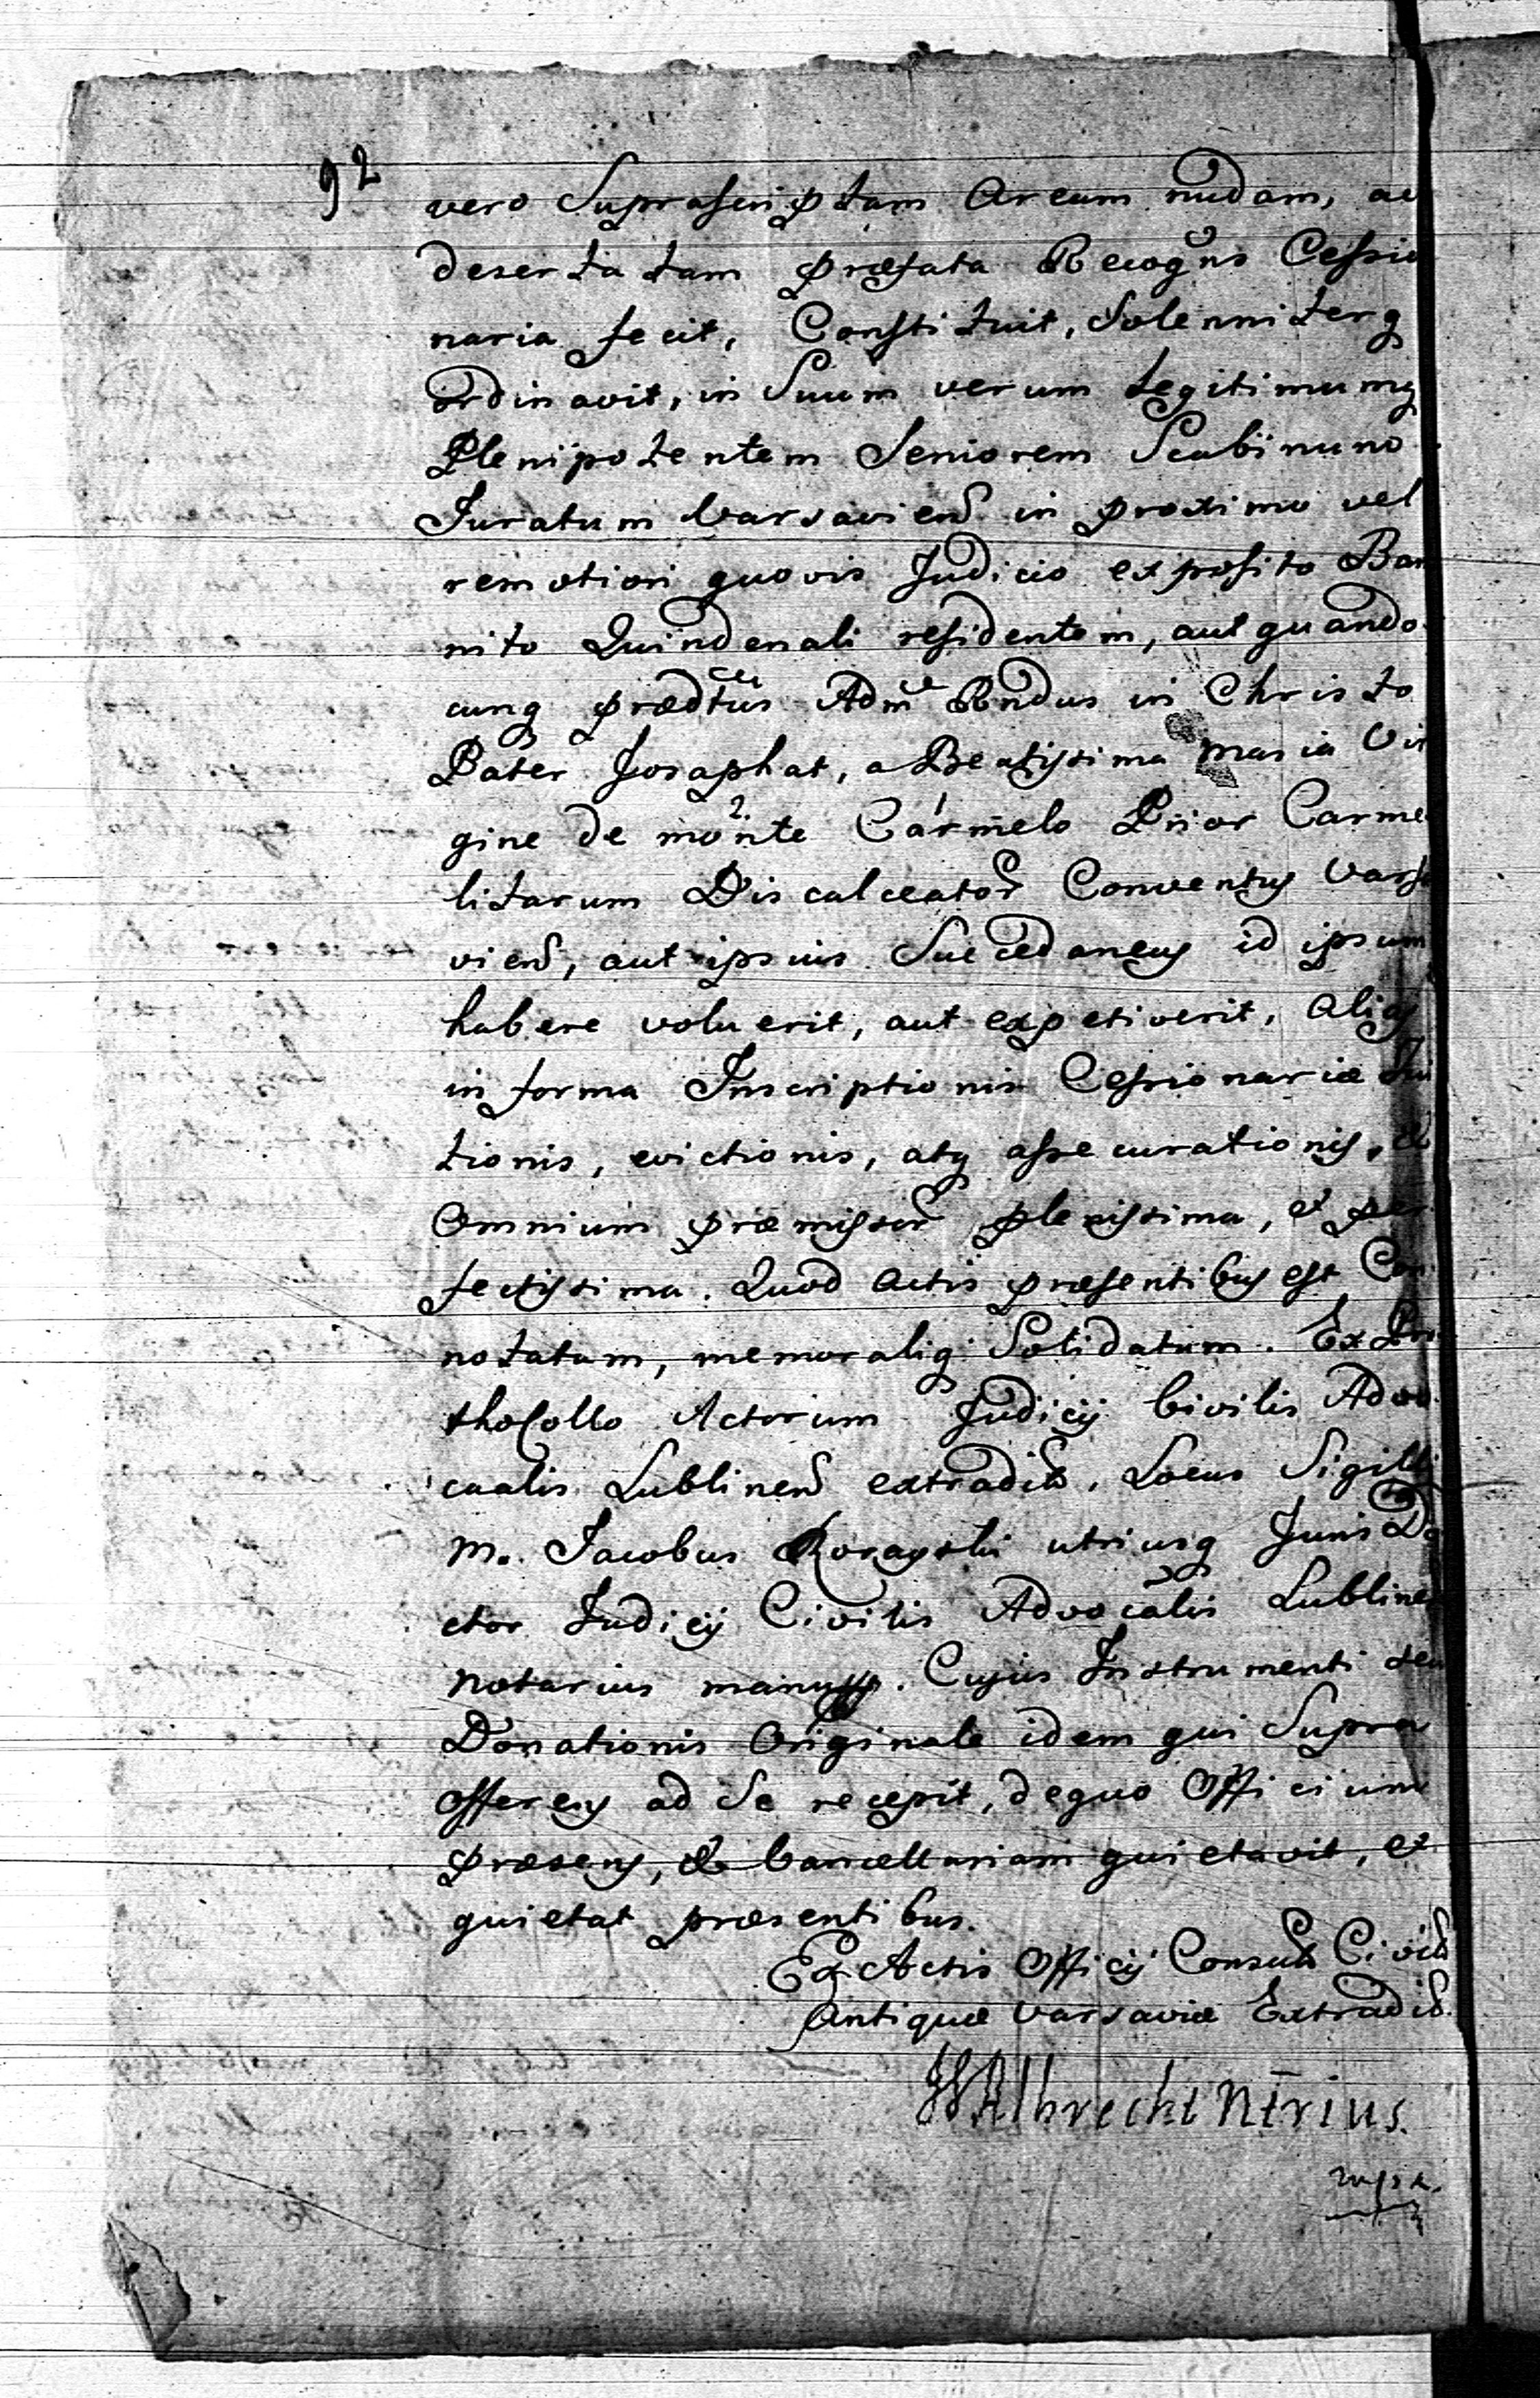 92
vero Suprascriptam Aream nudam, ac
desertatam præfata Recogns Cessio
naria fecit, Constituit, Solenniterq
ordinavit, in Suum verum legitimumq
Plenipotentem Seniorem Scabinum
Juratum Varsavien in proximo vel
remotiori quovis Judicio exposito Ban
nito Quindenali residentem, aut quando
cunq prædtus Adm Rndus in Christo
Pater Josaphat, a Beatissima Maria Vir
gine de monte Carmelo Prior Carme
litarum Discalceator Conventus Varsa
vien, aut ipsius Succedaneus id ipsum
habere voluerit, aut expetiverit, alias
in forma Inscriptionis Cessionariæ
tionis, evictionis, atq assecurationis, et
Omnium præmissor plenissima, et per
fectissima. Quod Actis præsentibus est Con
notatum, memoraliq Solidatum. Ex Pro
thocollo Actorum Judicij Civilis Advo
catialis Lublinen extradit. Locus Sigilli
M. Jacobus utriusq Juris Do
ctor Judicij Civilis Advocalis Lublinen
notarius manupp. Cujus Instrumenti seu
Donationis Originale idem qui Supra
offerens ad se recepit, de quo Officium
præsens, et Cancellariam quietavit, et
quietat præsentibus.
Ex Actis Officij Consul Civil
Antiquæ Varsaviæ Extradit.
Albrecht Ntrius.
mpp.